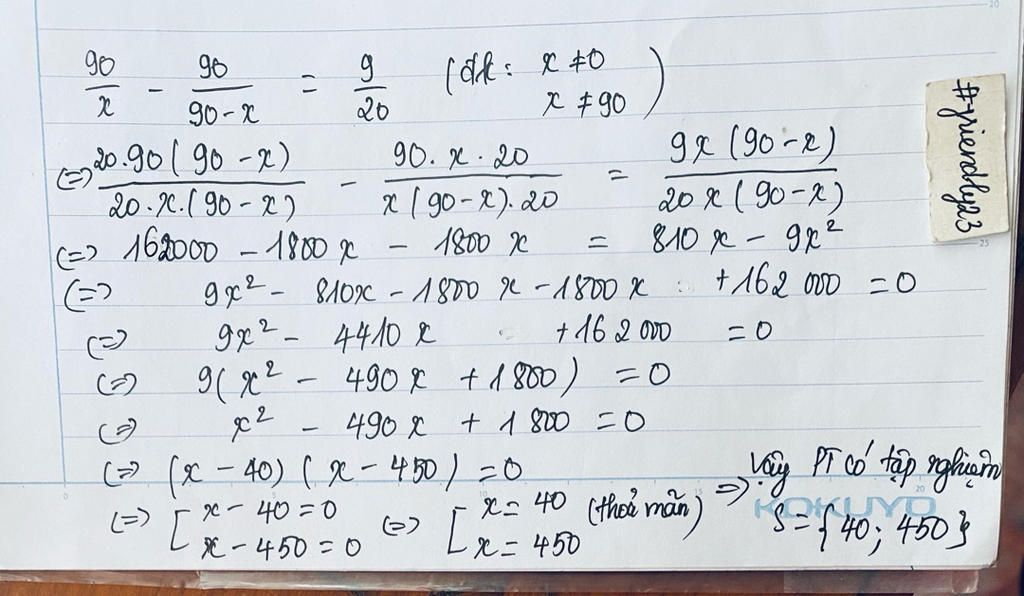 90/x - 90/(90-x) = 9/20 (đk: x ≠ 0
x ≠ 90)
(=) 20.90(90-x)/20.x.(90-x) - 90.x.20/x(90-x).20 = 9x(90-x)/20x(90-x)
(=) 162000 - 1800x - 1800x = 810x - 9x²
(=) 9x² - 810x - 1800x - 1800x + 162 000 = 0
(=) 9x² - 4410x + 162 000 = 0
(=) 9(x² - 490x + 1800) = 0
(=) x² - 490x + 1800 = 0
(=) (x - 40)(x - 450) = 0
(=) [ x - 40 = 0 (=) [ x = 40 (thoả mãn)
x - 450 = 0 x = 450
=> Vậy PT có tập nghiệm
S = {40; 450}
KOKUYO
#friendly23